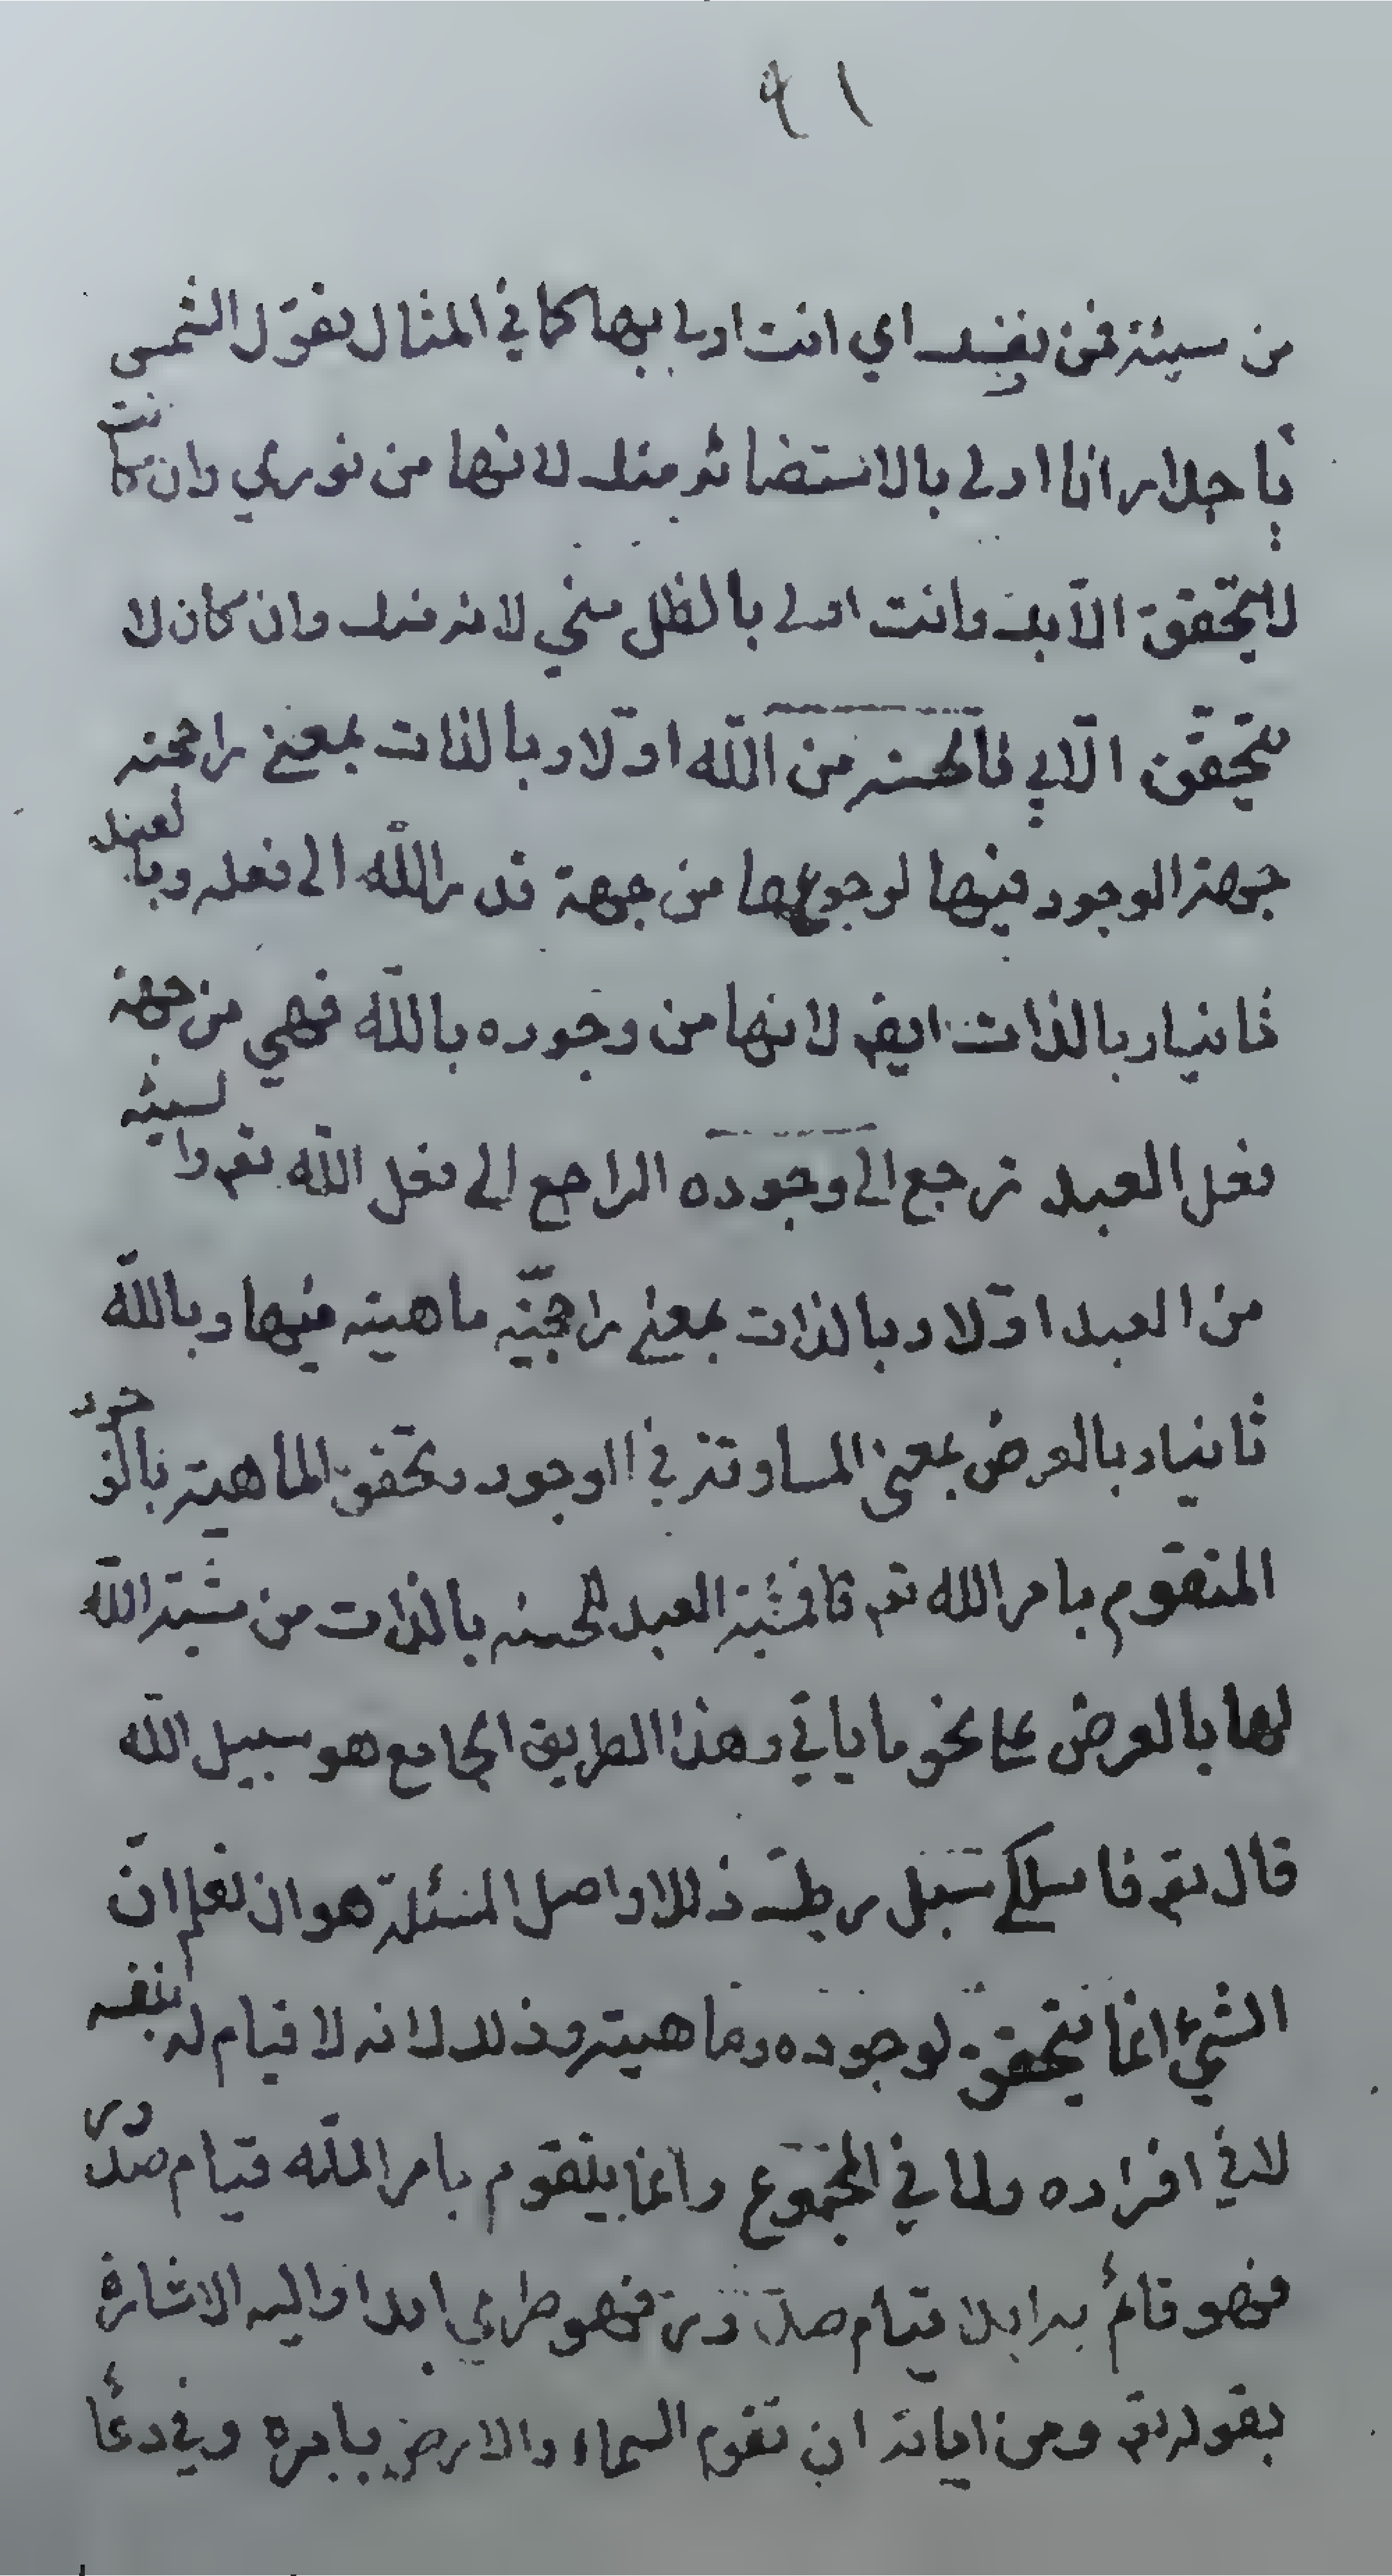 ٩١
من سيئة فمن نفسك اي انت اولى بها كما في المثال يقول الشمس
يا جدار انا اولى بالاستضائه منك لانها من نوري وان كانت
لا يتحقق الا بك وانت اولى بالظل مني لانه منك وان كان لا
يتحقق الا بي فالحسنه من الله اولا وبالذات بمعنى راجحيه
جهة الوجود فيها لرجوعها من جهة قدر الله الى فعله وبالعبد
ثانيا وبالذات ايضا لانها من وجوده بالله فهي من جهة
فعل العبد ترجع الى وجوده الراجع الى فعل الله تعم والسيئه
من العبد اولا وبالذات بمعنى راجحيّة ماهيته فيها وبالله
ثانيا وبالعرض بمعنى المساوقه في الوجود وتحقق الماهية بالوجود
المتقوم بامر الله تعم فالمشية العبد للحسنه بالذات من مشية الله
لها بالعرض على نحو ما ياتي وهذا الطريق الجامع هو سبيل الله
قال تعم فاسلكي سبل ربك ذللا واصل المسئلة هو ان تعلم انّ
الشيئ انما يتحقق لوجوده وماهيته وذلك لانه لا قيام له بنفسه
لا في افراده ولا في المجموع وانما يتقوم بامر الله قيام صدور
فهو قائم به ابدا قيام صدور فهو طري ابدا واليه الاشارة
بقوله تعم ومن اياته ان تقوم السماء والارض بامره وفي دعأ